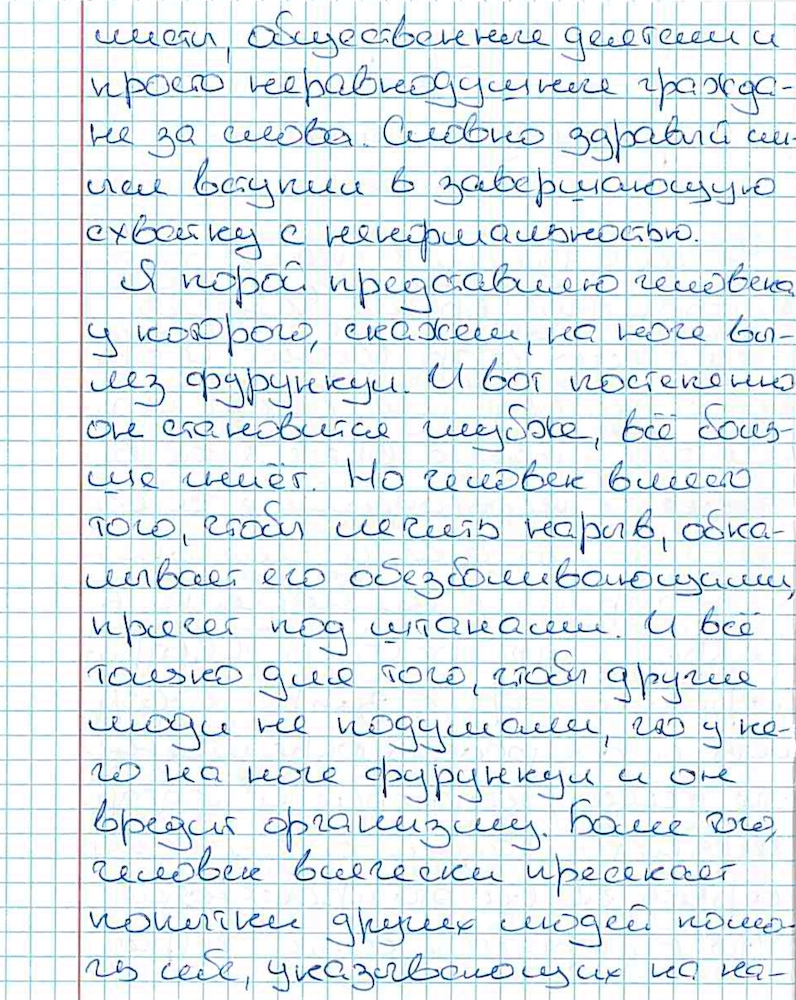 листы, общественные деятели и
просто неравнодушные гражда-
не за слова. Словно здравый смы-
сл вступил в завершающую
схватку с ненормальностью.
Я порой представляю человека
у которого, скажем, на ноге вы-
лез фурункул. И вот постепенно
он становится глубже, всё боль-
ше гниёт. Но человек вместо
того, чтобы лечить нарыв, обка-
лывает его обезболивающими,
прячет под штанами. И всё
только для того, чтобы другие
люди не подумали, что у не-
го на ноге фурункул и он
вредит организму. Более того,
человек всячески пресекает
попытки других людей помо-
гь себе, указывающих на на-